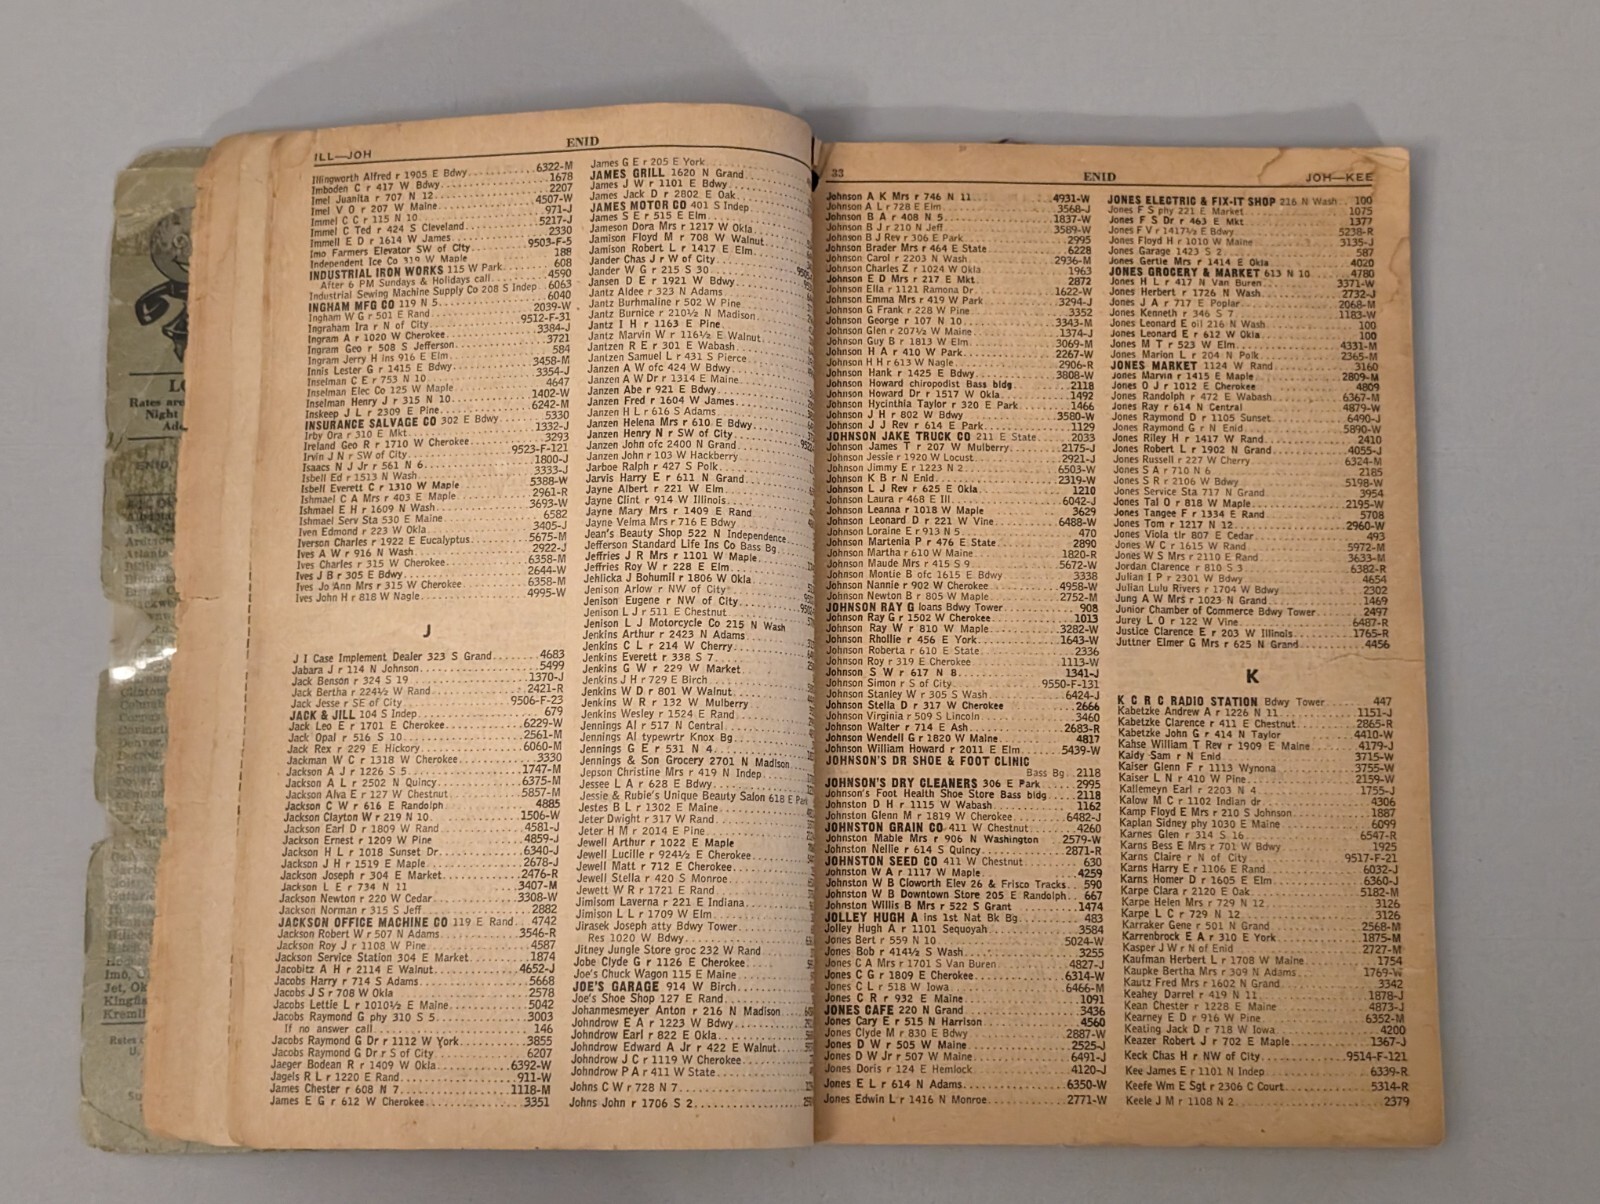 ILL—JOH
ENID
Illingworth Alfred r 1905 E Bdwy 6322-M
Imboden C r 417 W Bdwy 1678
Imel Juanita r 707 N 12 2207
Imel V O r 207 W Maine 4507-W
Immel C C r 115 N 10 971-J
Immel C Ted r 424 S Cleveland 5217-J
Immell E D r 1614 W James 2330
Imo Farmers Elevator SW of City 9503-F-5
Independent Ice Co 319 W Maple 188
INDUSTRIAL IRON WORKS 115 W Park 608
After 6 PM Sundays & Holidays call 4590
Industrial Sewing Machine Supply Co 208 S Indep 6063
INGHAM MFG CO 119 N 5 6040
Ingham W G r 501 E Rand 2039-W
Ingraham Ira r N of City 9512-F-31
Ingram A r 1020 W Cherokee 3384-J
Ingram Geo r 508 S Jefferson 3721
Ingram Jerry H ins 916 E Elm 584
Innis Lester G r 1415 E Bdwy 3458-M
Inselman C E r 753 N 10 3354-J
Inselman Elec Co 125 W Maple 4647
Inselman Henry J r 315 N 10 1402-W
Inskeep J L r 2309 E Pine 6242-M
INSURANCE SALVAGE CO 302 E Bdwy 5330
Irby Ora r 310 E Mkt 1332-J
Ireland Geo R r 1710 W Cherokee 3293
Irvin J N r SW of City 9523-F-121
Isaacs N J Jr r 561 N 6 1800-J
Isbell Ed r 1513 N Wash 3333-J
Isbell Everett C r 1310 W Maple 5388-W
Ishmael C A Mrs r 403 E Maple 2961-R
Ishmael E H r 1609 N Wash 3693-W
Ishmael Serv Sta 530 E Maine 6582
Iven Edmond r 223 W Okla 3405-J
Iverson Charles r 1922 E Eucalyptus 5675-M
Ives A W r 916 N Wash 2922-J
Ives Charles r 315 W Cherokee 6358-M
Ives J B r 305 E Bdwy 2644-W
Ives Jo Ann Mrs r 315 W Cherokee 6358-M
Ives John H r 818 W Nagle 4995-W
J
J I Case Implement Dealer 323 S Grand 4683
Jabara J r 114 N Johnson 5499
Jack Benson r 324 S 19 1370-J
Jack Bertha r 224½ W Rand 2421-R
Jack Jesse r SE of City 9506-F-23
JACK & JILL 104 S Indep 679
Jack Leo E r 1701 E Cherokee 6229-W
Jack Opal r 516 S 10 2561-M
Jack Rex r 229 E Hickory 6060-M
Jackman W C r 1318 W Cherokee 3330
Jackson A J r 1226 S 5 1747-M
Jackson A L r 2502 N Quincy 6375-M
Jackson Alva E r 127 W Chestnut 5857-M
Jackson C W r 616 E Randolph 4885
Jackson Clayton W r 219 N 10 1506-W
Jackson Earl D r 1809 W Rand 4581-J
Jackson Ernest r 1209 W Pine 4859-J
Jackson H L r 1018 Sunset Dr 6340-J
Jackson J H r 1519 E Maple 2678-J
Jackson Joseph r 304 E Market 2476-R
Jackson L E r 734 N 11 3407-M
Jackson Newton r 220 W Cedar 3308-W
Jackson Norman r 315 S Jeff 2882
JACKSON OFFICE MACHINE CO 119 E Rand 4742
Jackson Robert W r 507 N Adams 3546-R
Jackson Roy J r 1108 W Pine 4587
Jackson Service Station 304 E Market 1874
Jacobitz A H r 2114 E Walnut 4652-J
Jacobs Harry r 714 S Adams 5668
Jacobs J S r 708 W Okla 2578
Jacobs Lettie L r 1010½ E Maine 5042
Jacobs Raymond G phy 310 S 5 3003
If no answer call 146
Jacobs Raymond G Dr r 1112 W York 3855
Jacobs Raymond G Dr r S of City 6207
Jaeger Bodean R r 1409 W Okla 6392-W
Jagels R L r 1220 E Rand 911-W
James Chester r 608 N 7 1118-M
James E G r 612 W Cherokee 3351
James G E r 205 E York
JAMES GRILL 1620 N Grand
James J W r 1101 E Bdwy
James Jack D r 2802 E Oak
JAMES MOTOR CO 401 S Indep
James S E r 515 E Elm
Jameson Dora Mrs r 1217 W Okla
Jamison Floyd M r 708 W Walnut
Jamison Robert L r 1417 E Elm
Jander Chas J r W of City
Jander W G r 215 S 30
Jansen D E r 1921 W Bdwy
Jantz Aldee r 323 N Adams
Jantz Burhmaline r 502 W Pine
Jantz Burnice r 210½ N Madison
Jantz I H r 1163 E Pine
Jantz Marvin W r 116½ E Walnut
Jantzen R E r 301 E Wabash
Jantzen Samuel L r 431 S Pierce
Janzen A W ofc 424 W Bdwy
Janzen A W Dr r 1314 E Maine
Janzen Abe r 921 E Bdwy
Janzen Fred r 1604 W James
Janzen H L r 616 S Adams
Janzen Helena Mrs r 610 E Bdwy
Janzen Henry N r SW of City
Janzen John ofc 2400 N Grand
Janzen John r 103 W Hackberry
Jarboe Ralph r 427 S Polk
Jarvis Harry E r 611 N Grand
Jayne Albert r 221 W Elm
Jayne Clint r 914 W Illinois
Jayne Mary Mrs r 1409 E Rand
Jayne Velma Mrs r 716 E Bdwy
Jean's Beauty Shop 522 N Independence
Jefferson Standard Life Ins Co Bass Bg
Jeffries J R Mrs r 1101 W Maple
Jeffries Roy W r 228 E Elm
Jehlicka J Bohumil r 1806 W Okla
Jenison Arlow r NW of City
Jenison Eugene r NW of City
Jenison L J r 511 E Chestnut
Jenison L J Motorcycle Co 215 N Wash
Jenkins Arthur r 2423 N Adams
Jenkins C L r 214 W Cherry
Jenkins Everett r 338 S 7
Jenkins G W r 229 W Market
Jenkins J H r 729 E Birch
Jenkins W D r 801 W Walnut
Jenkins W R r 132 W Mulberry
Jenkins Wesley r 1524 E Rand
Jennings Al r 517 N Central
Jennings Al typewrtr Knox Bg
Jennings G E r 531 N 4
Jennings & Son Grocery 2701 N Madison
Jepson Christine Mrs r 419 N Indep
Jessee L A r 628 E Bdwy
Jessie & Rubie's Unique Beauty Salon 618 E Park
Jestes B L r 1302 E Maine
Jeter Dwight r 317 W Rand
Jeter H M r 2014 E Pine
Jewell Arthur r 1022 E Maple
Jewell Lucille r 924½ E Cherokee
Jewell Matt r 712 E Cherokee
Jewell Stella r 420 S Monroe
Jewett W R r 1721 E Rand
Jimisom Laverna r 221 E Indiana
Jimison L L r 1709 W Elm
Jirasek Joseph atty Bdwy Tower
Res 1020 W Bdwy
Jitney Jungle Store groc 232 W Rand
Jobe Clyde G r 1126 E Cherokee
Joe's Chuck Wagon 115 E Maine
JOE'S GARAGE 914 W Birch
Joe's Shoe Shop 127 E Rand
Johanmesmeyer Anton r 216 N Madison
Johndrow E A r 1223 W Bdwy
Johndrow Earl r 822 E Okla
Johndrow Edward A Jr r 422 E Walnut
Johndrow J C r 1119 W Cherokee
Johndrow P A r 411 W State
Johns C W r 728 N 7
Johns John r 1706 S 2
33
ENID
JOH—KEE
Johnson A K Mrs r 746 N 11 4931-W
Johnson A L r 728 E Elm 3568-J
Johnson B A r 408 N 5 1837-W
Johnson B J r 210 N Jeff 3589-W
Johnson B J Rev r 306 E Park 2995
Johnson Brader Mrs r 464 E State 6228
Johnson Carol r 2203 N Wash 2936-M
Johnson Charles Z r 1024 W Okla 1963
Johnson E D Mrs r 217 E Mkt 2872
Johnson Ella r 1121 Ramona Dr 1622-W
Johnson Emma Mrs r 419 W Park 3294-J
Johnson G Frank r 228 W Pine 3352
Johnson George r 107 N 10 3343-M
Johnson Glen r 207½ W Maine 1374-J
Johnson Guy B r 1813 W Elm 3069-M
Johnson H A r 410 W Park 2267-W
Johnson H H r 613 W Nagle 2906-R
Johnson Hank r 1425 E Bdwy 3808-W
Johnson Howard chiropodist Bass bldg 2118
Johnson Howard Dr r 1517 W Okla 1492
Johnson Hycinthia Taylor r 320 E Park 1466
Johnson J H r 802 W Bdwy 3580-W
Johnson J J Rev r 614 E Park 1129
JOHNSON JAKE TRUCK CO 211 E State 2033
Johnson James T r 207 W Mulberry 2175-J
Johnson Jessie r 1920 W Locust 2921-J
Johnson Jimmy E r 1223 N 2 6503-W
Johnson K B r N Enid 2319-W
Johnson L J Rev r 625 E Okla 1210
Johnson Laura r 468 E Ill 6042-J
Johnson Leanna r 1018 W Maple 3629
Johnson Leonard D r 221 W Vine 6488-W
Johnson Loraine E r 913 N 5 470
Johnson Martenia P r 476 E State 2890
Johnson Martha r 610 W Maine 1820-R
Johnson Maude Mrs r 415 S 9 5672-W
Johnson Montie B ofc 1615 E Bdwy 3338
Johnson Nannie r 902 W Cherokee 4958-W
Johnson Newton B r 805 W Maple 2752-M
JOHNSON RAY G loans Bdwy Tower 908
Johnson Ray G r 1502 W Cherokee 1013
Johnson Ray W r 810 W Maple 3282-W
Johnson Rhollie r 456 E York 1643-W
Johnson Roberta r 610 E State 2336
Johnson Roy r 319 E Cherokee 1113-W
Johnson S W r 617 N 8 1341-J
Johnson Simon r S of City 9550-F-131
Johnson Stanley W r 305 S Wash 6424-J
Johnson Stella D r 317 W Cherokee 2666
Johnson Virginia r 509 S Lincoln 3460
Johnson Walter r 714 E Ash 2683-R
Johnson Wendell G r 1820 W Maine 4817
Johnson William Howard r 2011 E Elm 5439-W
JOHNSON'S DR SHOE & FOOT CLINIC
Bass Bg 2118
JOHNSON'S DRY CLEANERS 306 E Park 2995
Johnson's Foot Health Shoe Store Bass bldg 2118
Johnston D H r 1115 W Wabash 1162
Johnston Glenn M r 1819 W Cherokee 6482-J
JOHNSTON GRAIN CO 411 W Chestnut 4260
Johnston Mable Mrs r 906 N Washington 2579-W
Johnston Nellie r 614 S Quincy 2871-R
JOHNSTON SEED CO 411 W Chestnut 630
Johnston W A r 1117 W Maple 4259
Johnston W B Cloworth Elev 26 & Frisco Tracks 590
Johnston W B Downtown Store 205 E Randolph 667
Johnston Willis B Mrs r 522 S Grant 1474
JOLLEY HUGH A ins 1st Nat Bk Bg 483
Jolley Hugh A r 1101 Sequoyah 3584
Jones Bert r 559 N 10 5024-W
Jones Bob r 414½ S Wash 3255
Jones C A Mrs r 1701 S Van Buren 4827-J
Jones C G r 1809 E Cherokee 6314-W
Jones C L r 518 W Iowa 6466-M
Jones C R r 932 E Maine 1091
JONES CAFE 220 N Grand 3436
Jones Cary E r 515 N Harrison 4560
Jones Clyde M r 830 E Bdwy 2887-W
Jones D W r 505 W Maine 2525-J
Jones D W Jr r 507 W Maine 6491-J
Jones Doris r 124 E Hemlock 4120-J
Jones E L r 614 N Adams 6350-W
Jones Edwin L r 1416 N Monroe 2771-W
JONES ELECTRIC & FIX-IT SHOP 216 N Wash 100
Jones F S phy 221 E Market 1075
Jones F S Dr r 463 E Mkt 1377
Jones F V r 1417½ E Bdwy 5238-R
Jones Floyd H r 1010 W Maine 3135-J
Jones Garage 1423 S 2 587
Jones Gertie Mrs r 1414 E Okla 4020
JONES GROCERY & MARKET 613 N 10 4780
Jones H L r 417 N Van Buren 3371-W
Jones Herbert r 1726 N Wash 2732-J
Jones J A r 717 E Poplar 2068-M
Jones Kenneth r 346 S 7 1183-W
Jones Leonard E oil 216 N Wash 100
Jones Leonard E r 612 W Okla 100
Jones M T r 523 W Elm 4331-M
Jones Marion L r 204 N Polk 2365-M
JONES MARKET 1124 W Rand 3160
Jones Marvin r 1415 E Maple 2809-M
Jones O J r 1012 E Cherokee 4809
Jones Randolph r 472 E Wabash 6367-M
Jones Ray r 614 N Central 4879-W
Jones Raymond D r 1105 Sunset 6490-J
Jones Raymond G r N Enid 5890-W
Jones Riley H r 1417 W Rand 2410
Jones Robert L r 1902 N Grand 4055-J
Jones Russell r 227 W Cherry 6324-M
Jones S A r 710 N 6 2185
Jones S R r 2106 W Bdwy 5198-W
Jones Service Sta 717 N Grand 3954
Jones Tal O r 818 W Maple 2195-W
Jones Tangee F r 1334 E Rand 5708
Jones Tom r 1217 N 12 2960-W
Jones Viola tlr 807 E Cedar 493
Jones W C r 1615 W Rand 5972-M
Jones W S Mrs r 2110 E Rand 3633-M
Jordan Clarence r 810 S 3 6382-R
Julian I P r 2301 W Bdwy 4654
Julian Lulu Rivers r 1704 W Bdwy 2302
Jung A W Mrs r 1023 N Grand 1469
Junior Chamber of Commerce Bdwy Tower 2497
Jurey L O r 122 W Vine 6487-R
Justice Clarence E r 203 W Illinois 1765-R
Juttner Elmer G Mrs r 625 N Grand 4456
K
K C R C RADIO STATION Bdwy Tower 447
Kabetzke Andrew A r 1226 N 11 1151-J
Kabetzke Clarence r 411 E Chestnut 2865-R
Kabetzke John G r 414 N Taylor 4410-W
Kahse William T Rev r 1909 E Maine 4179-J
Kaidy Sam r N Enid 3715-W
Kaiser Glenn F r 1113 Wynona 3755-W
Kaiser L N r 410 W Pine 2159-W
Kallemeyn Earl r 2203 N 4 1755-J
Kalow M C r 1102 Indian dr 4306
Kamp Floyd E Mrs r 210 S Johnson 1887
Kaplan Sidney phy 1030 E Maine 6099
Karnes Glen r 314 S 16 6547-R
Karns Bess E Mrs r 701 W Bdwy 1925
Karns Claire r N of City 9517-F-21
Karns Harry E r 1106 E Rand 6032-J
Karns Homer D r 1605 E Elm 6360-J
Karpe Clara r 2120 E Oak 5182-M
Karpe Helen Mrs r 729 N 12 3126
Karpe L C r 729 N 12 3126
Karraker Gene r 501 N Grand 2568-M
Karrenbrock E A r 310 E York 1875-M
Kasper J W r N of Enid 2727-M
Kaufman Herbert L r 1708 W Maine 1754
Kaupke Bertha Mrs r 309 N Adams 1769-W
Kautz Fred Mrs r 1602 N Grand 3342
Keahey Darrel r 419 N 11 1878-J
Kean Chester r 1228 E Maine 4873-J
Kearney E D r 916 W Pine 6352-M
Keating Jack D r 718 W Iowa 4200
Keazer Robert J r 702 E Maple 1367-J
Keck Chas H r NW of City 9514-F-121
Kee James E r 1101 N Indep 6339-R
Keefe Wm E Sgt r 2306 C Court 5314-R
Keele J M r 1108 N 2 2379